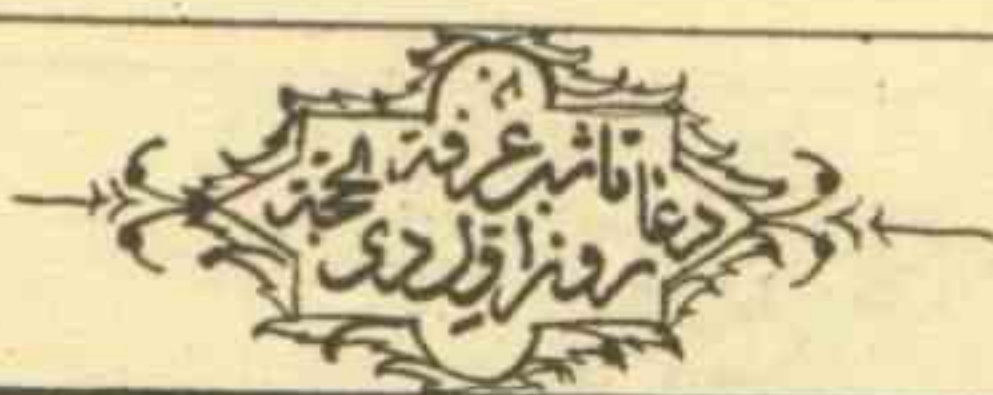 دعا تا شب عرفة الحجة
روز اول ذی